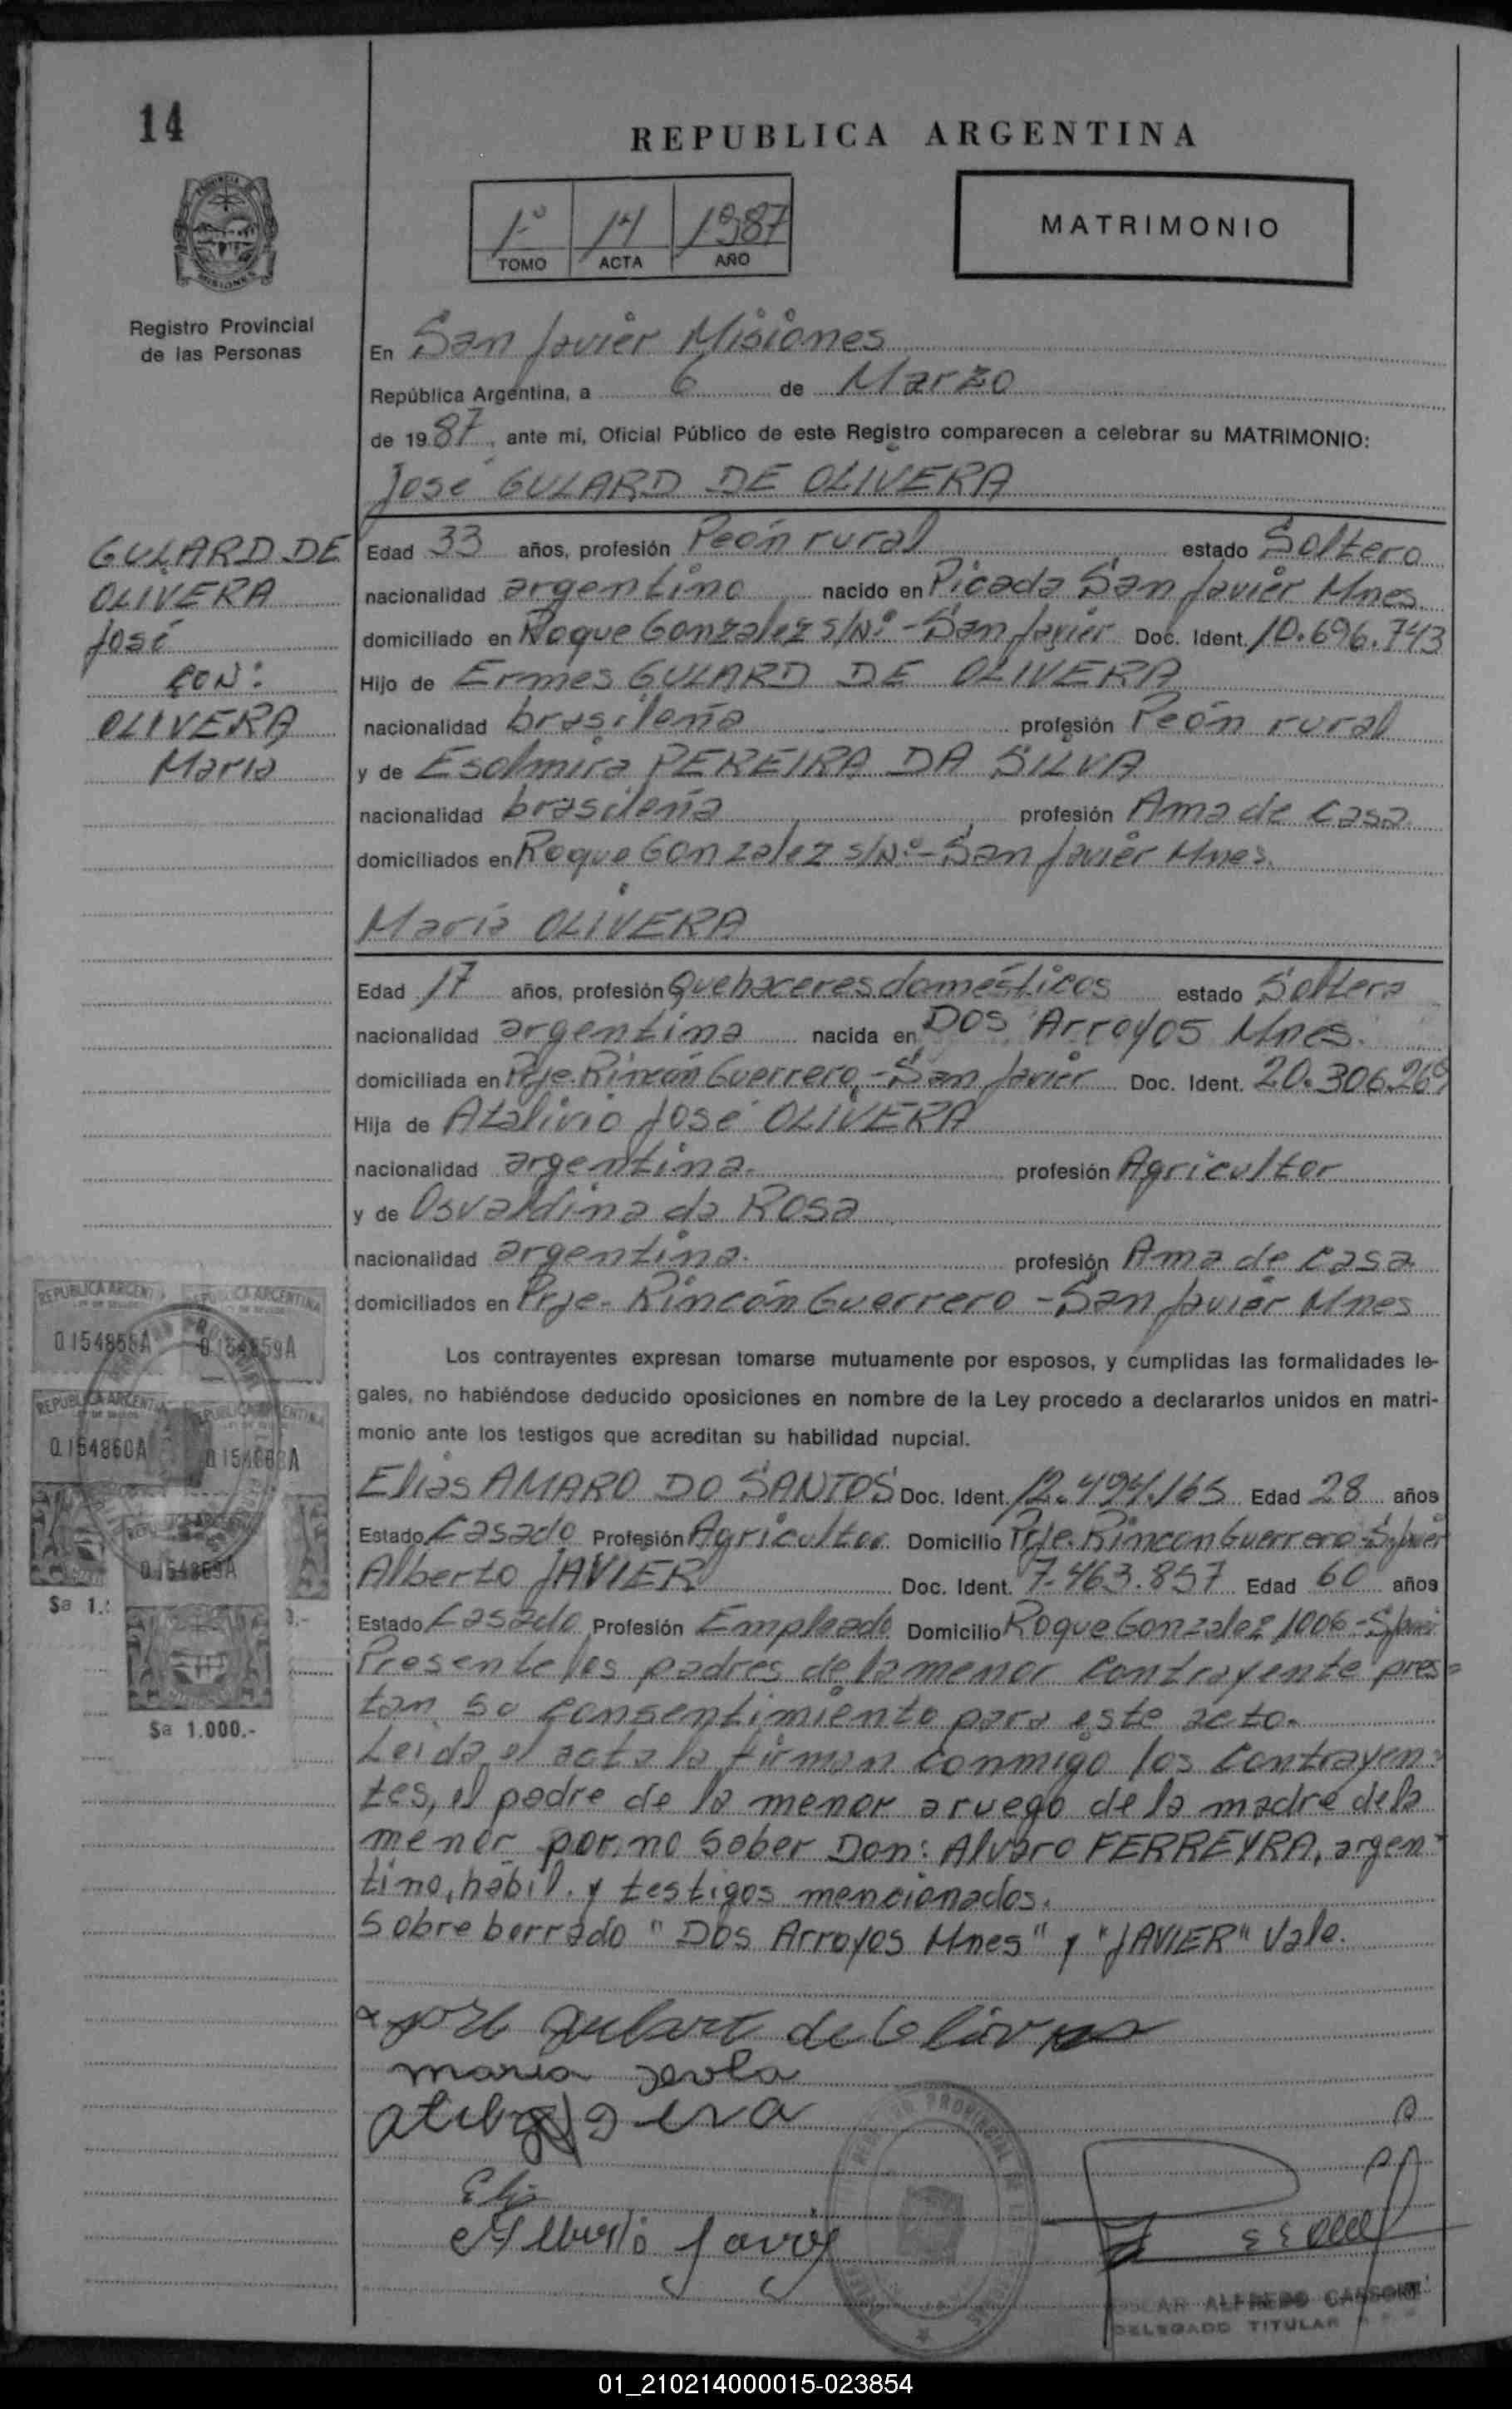 14
REPUBLICA ARGENTINA
1º 14 1987
TOMO ACTA AÑO
MATRIMONIO
Registro Provincial
de las Personas
En San Javier Misiones
República Argentina, a 6 de Marzo
de 1987, ante mí, Oficial Público de este Registro comparecen a celebrar su MATRIMONIO:
José GULARD DE OLIVERA
GULARD DE
OLIVERA
José
CON:
OLIVERA
Maria
Edad 33 años, profesión Peón rural estado Soltero
nacionalidad argentino nacido en Picada San Javier Mnes.
domiciliado en Roque Gonzalez s/Nº - San Javier Doc. Ident. 10.696.743
Hijo de Ermes GULARD DE OLIVERA
nacionalidad brasileña profesión Peón rural
y de Esolmira PEREIRA DA SILVA
nacionalidad brasileña profesión Ama de casa
domiciliados en Roque Gonzalez s/Nº - San Javier Mnes.
María OLIVERA
Edad 17 años, profesión Quehaceres domésticos estado Soltera
nacionalidad argentina nacida en DOS Arroyos Mnes.
domiciliada en Prje. Rincón Guerrero - San Javier Doc. Ident. 20.306.269
Hija de Atalivio José OLIVERA
nacionalidad argentina. profesión Agricultor
y de Osvaldina da Rosa
nacionalidad argentina. profesión Ama de casa
domiciliados en Prje. Rincón Guerrero - San Javier Mnes
Los contrayentes expresan tomarse mutuamente por esposos, y cumplidas las formalidades le-
gales, no habiéndose deducido oposiciones en nombre de la Ley procedo a declararlos unidos en matri-
monio ante los testigos que acreditan su habilidad nupcial.
Elias AMARO DO SANTOS Doc. Ident. 12.494.165 Edad 28 años
Estado Casado Profesión Agricultor Domicilio Prje. Rincon Guerrero S. Javier
Alberto JAVIER Doc. Ident. 7.463.857 Edad 60 años
Estado Casado Profesión Empleado Domicilio Roque Gonzalez 1006 - S/Javier
Presente los padres de la menor contrayente pres=
tan su consentimiento para este acto.
Leida el acta la firman conmigo los contrayen=
tes, el padre de la menor a ruego de la madre de la
menor por no saber Don: Alvaro FERREYRA, argen=
tino, hábil. y testigos mencionados.
Sobre borrado "Dos Arroyos Mnes" y "JAVIER" Vale.
REPUBLICA ARGENTINA
0.154859A
0.154860A
$a 1.000.-
maria
Alberto Javier
ALFREDO
DELEGADO TITULAR
01_210214000015-023854